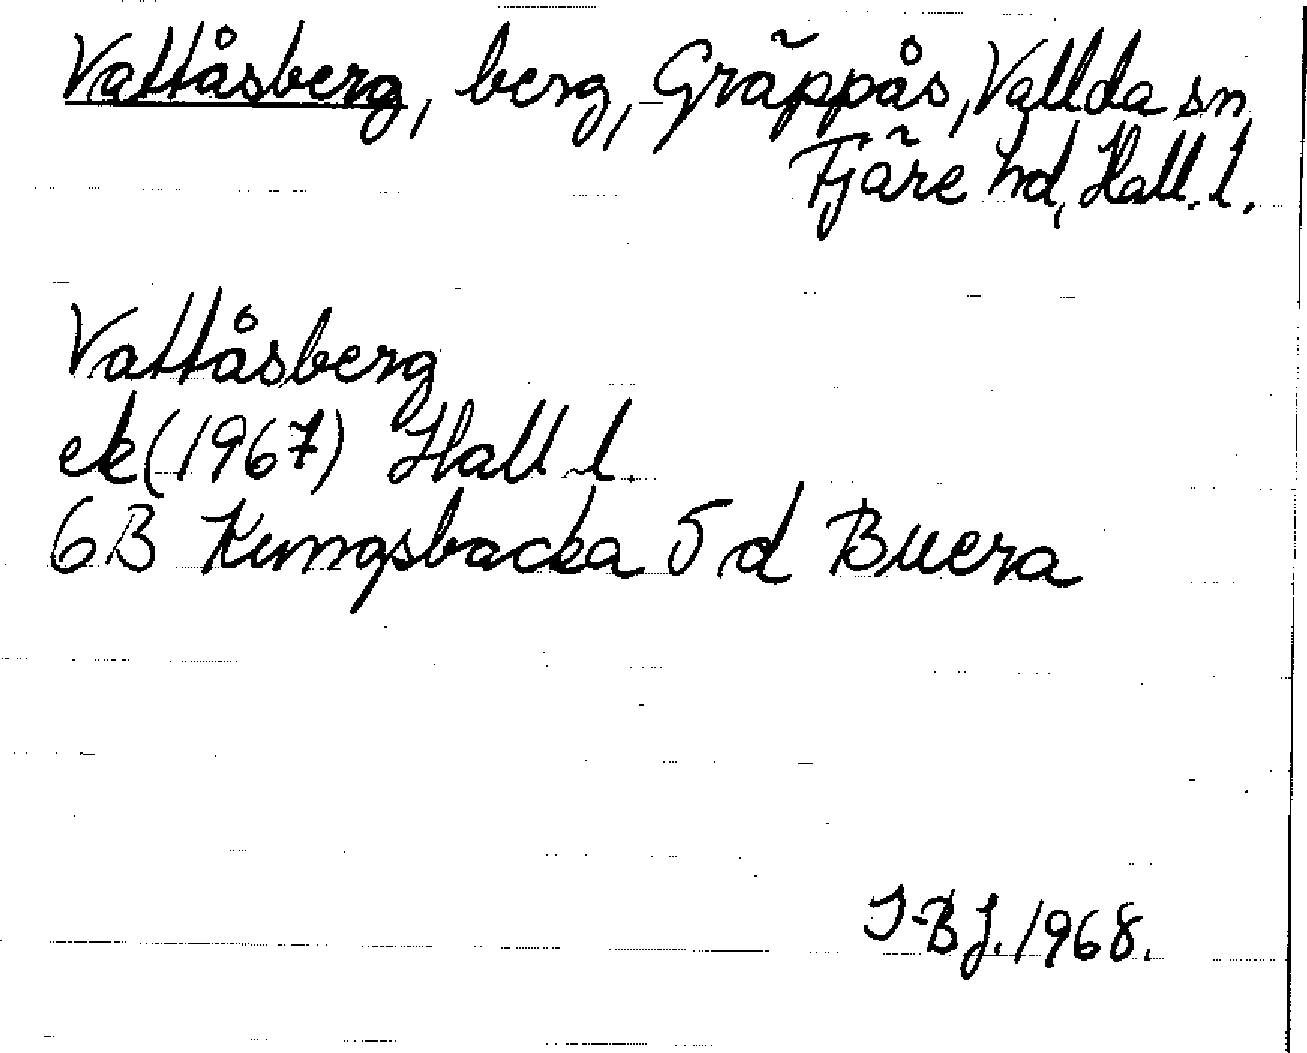 Vattåsberg, berg, Gräppås, Vallda sn
Fjäre hd, Hall. l.
Vattåsberg
ek (1967) Hall l.
6B Kungsbacka 5 d Buera
I-BJ. 1968.